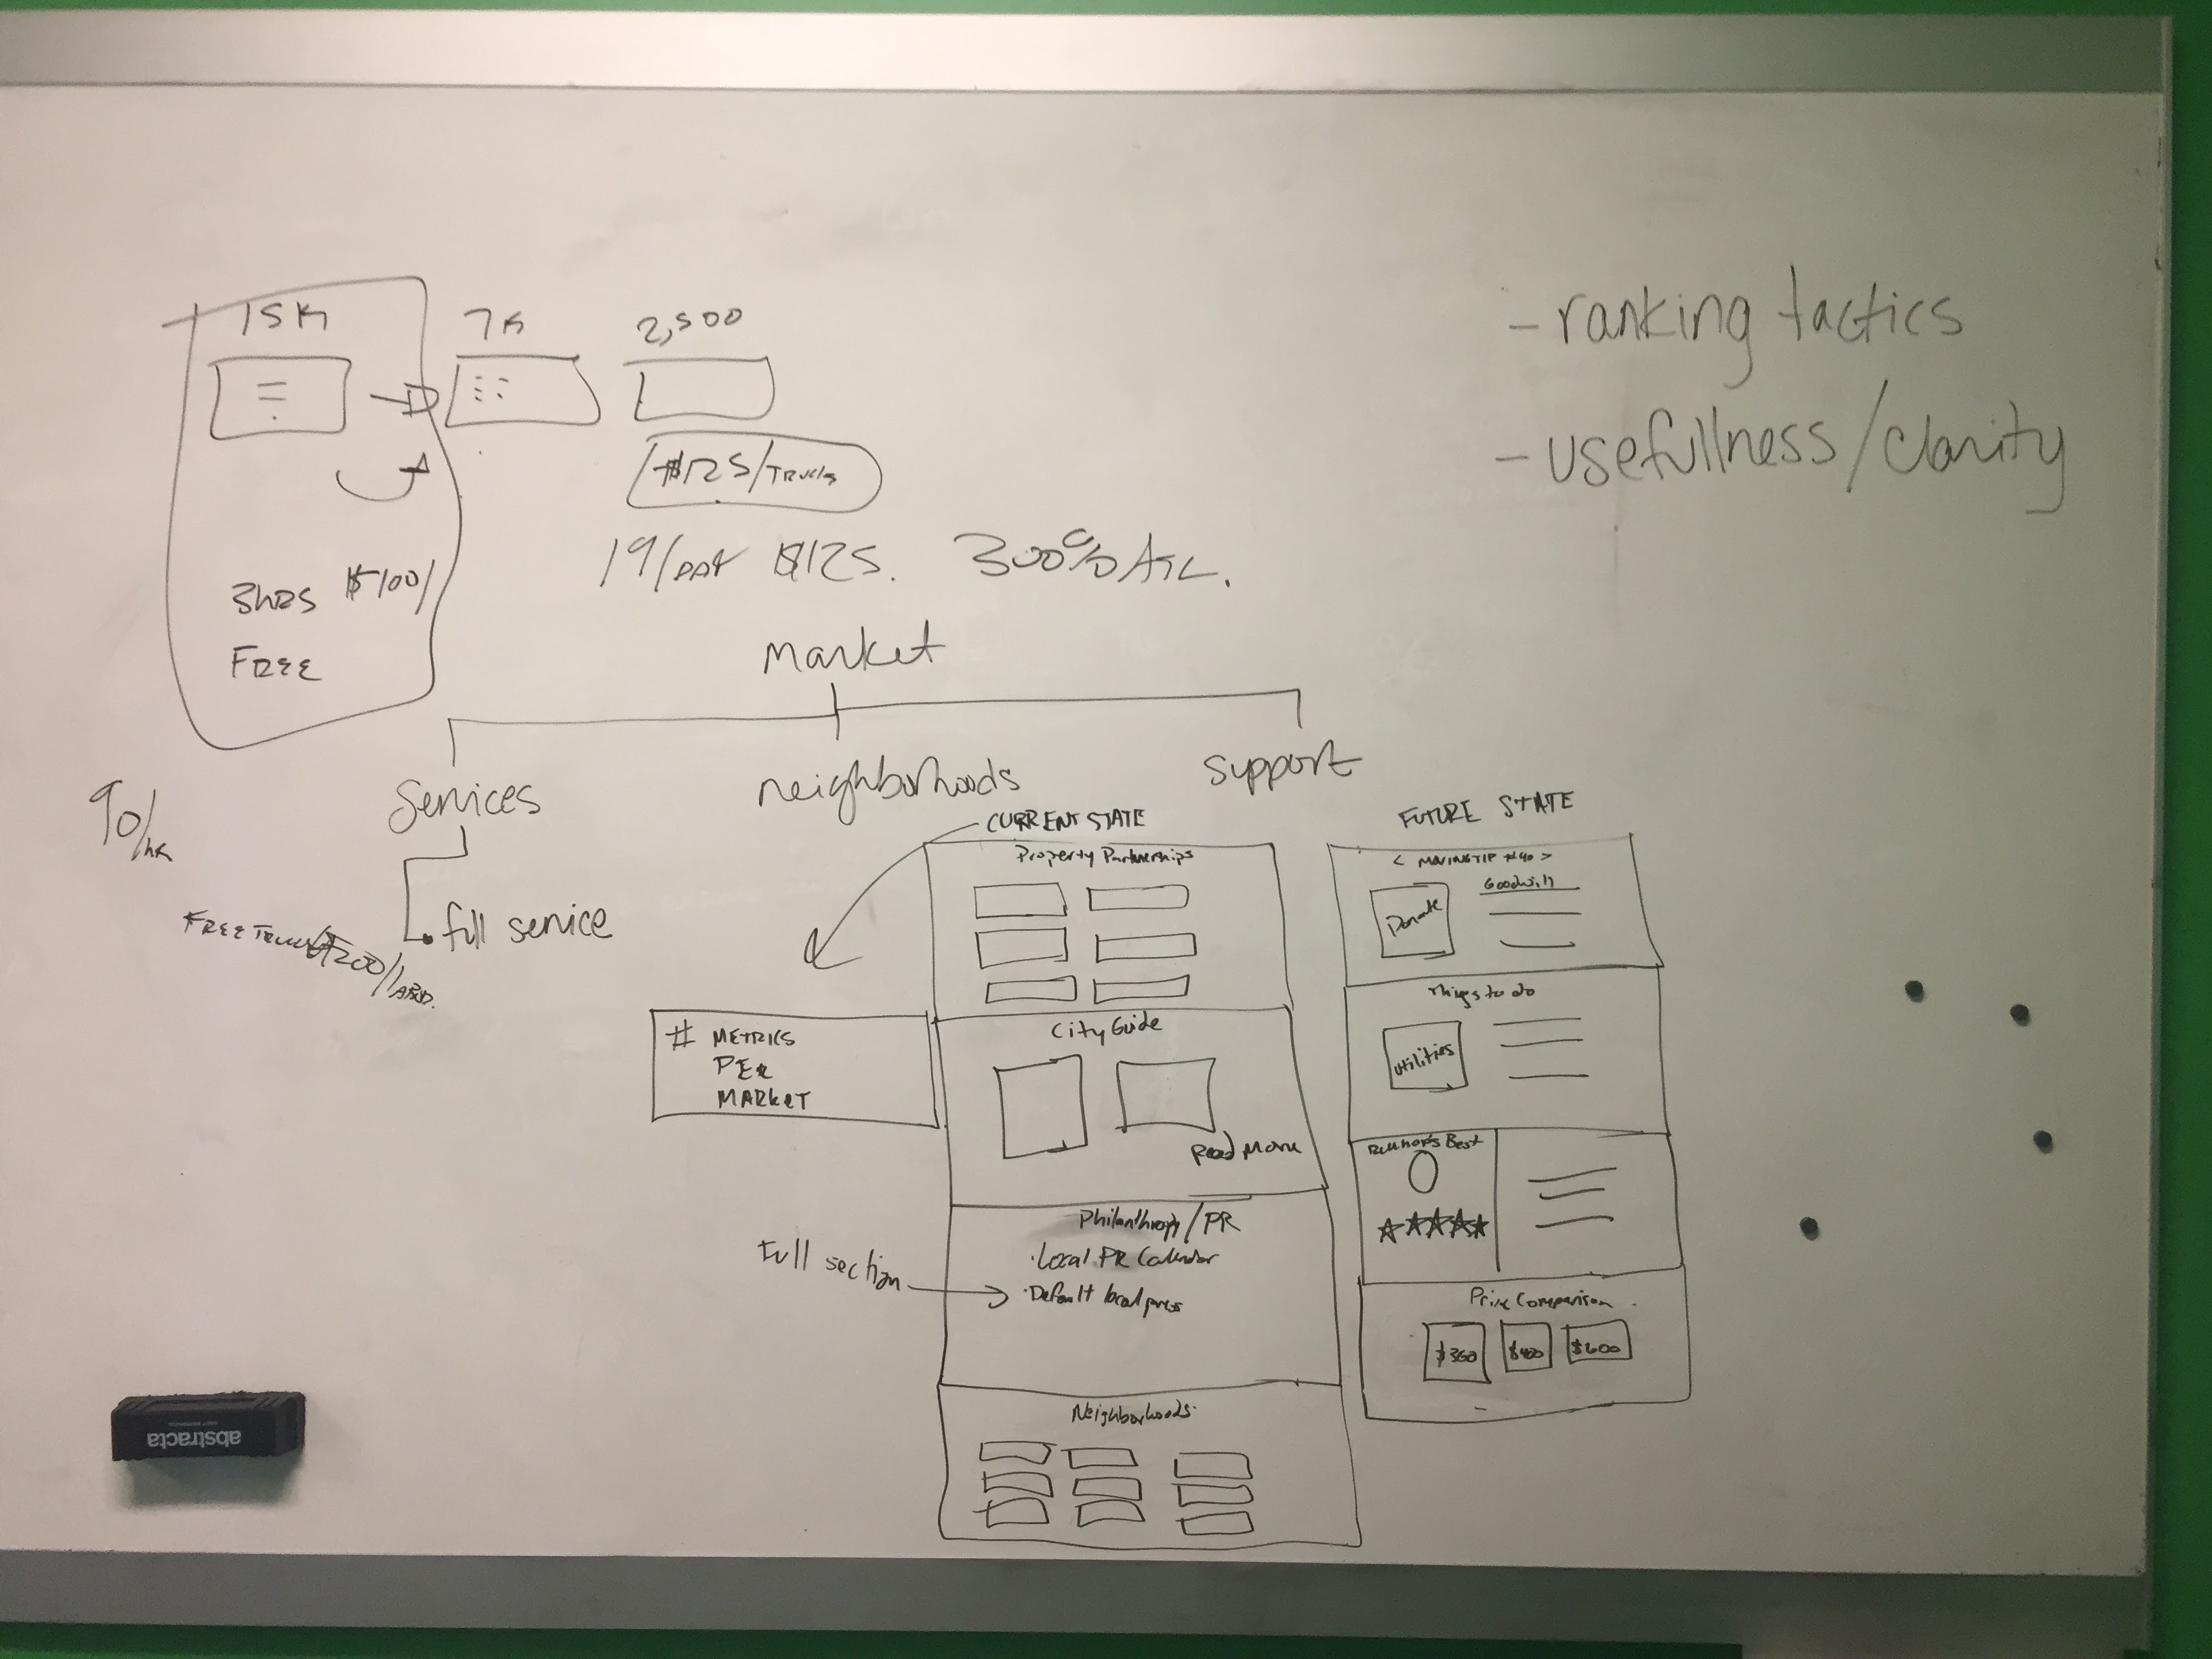 15K
7K
2,500
$125/TRUCK
19/DAY $125. 300% ATL.
3HRS $100/
FREE
- ranking tactics
- usefullness/clarity
market
services
neighborhoods
support
90/HR
full service
FREE TRUCK $200/
CURRENT STATE
Property Partnerships
City Guide
Read More
# METRICS
PER
MARKET
Philanthropy/PR
·Local PR Calendar
·Default local press
Full section
Neighborhoods
FUTURE STATE
< MOVING TIP #40 >
Donate
Goodwill
Things to do
Utilities
Best
Price Comparison
$360 $400 $600
abstracta